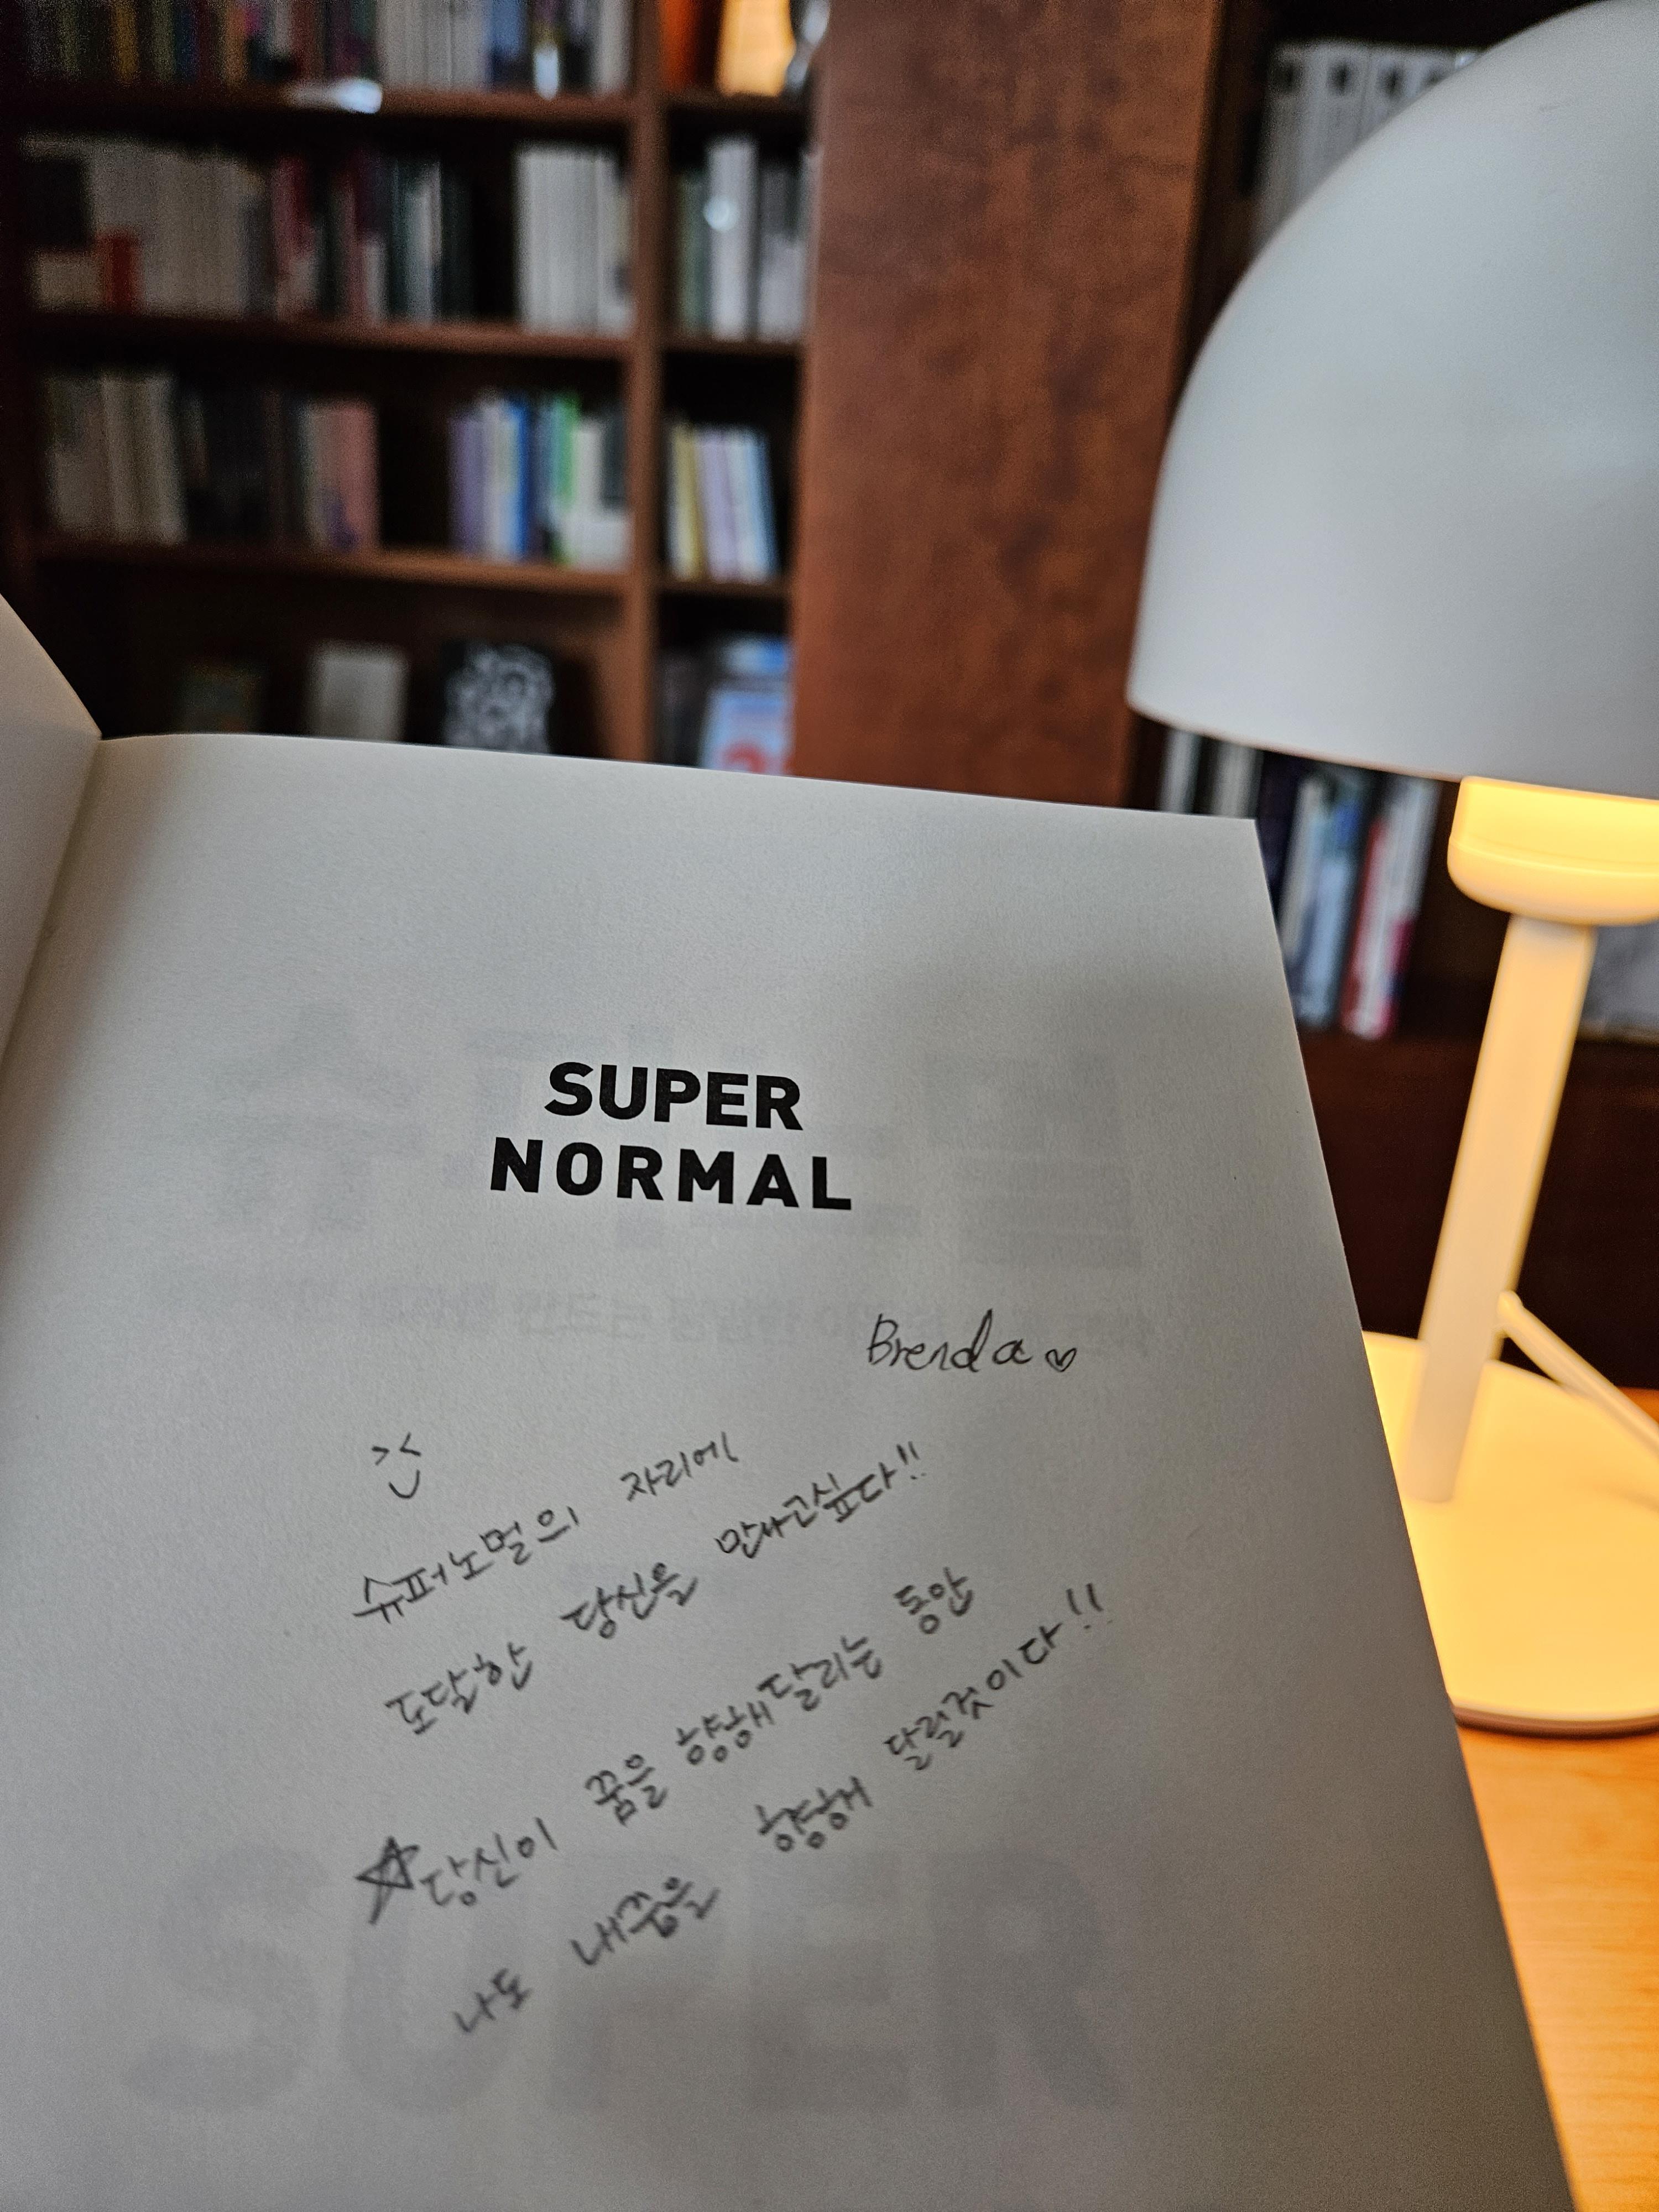 SUPER
NORMAL
Brenda♡
슈퍼노멀의 자리에
도달한 당신을 만나고싶다!!
☆당신이 꿈을 향해달리는 동안
나도 내꿈을 향해 달릴것이다!!